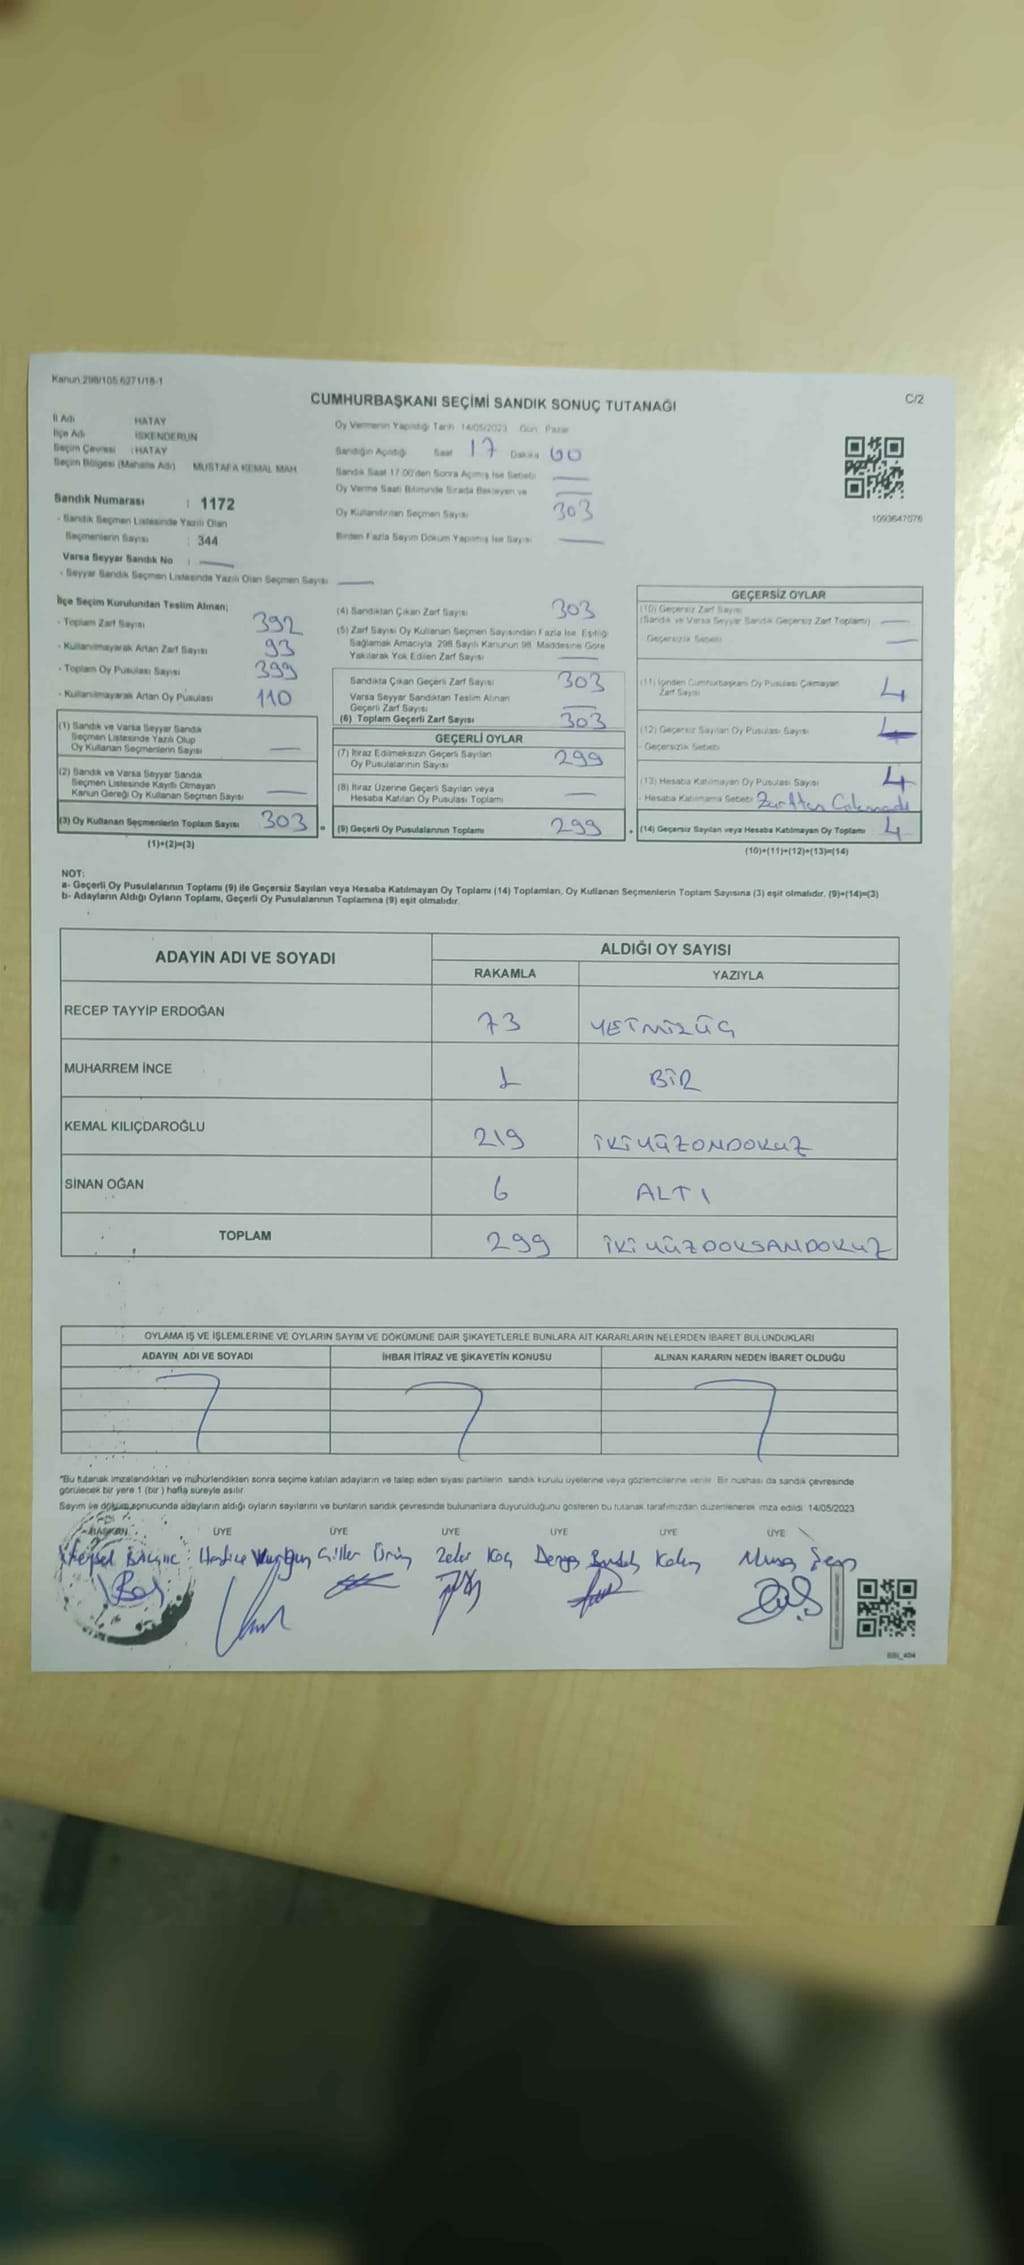 Kanun:298/105.6271/18-1
CUMHURBAŞKANI SEÇİMİ SANDIK SONUÇ TUTANAĞI
C/2
İl Adı HATAY
İlçe Adı İSKENDERUN
Seçim Çevresi : HATAY
Seçim Bölgesi (Mahalle Adı) MUSTAFA KEMAL MAH
Sandık Numarası : 1172
- Sandık Seçmen Listesinde Yazılı Olan
Seçmenlerin Sayısı : 344
Varsa Seyyar Sandık No :
- Seyyar Sandık Seçmen Listesinde Yazılı Olan Seçmen Sayısı
Oy Vermenin Yapıldığı Tarih 14/05/2023 Gün Pazar
Sandığın Açıldığı Saat 17 Dakika 00
Sandık Saat 17.00'den Sonra Açılmış İse Sebebi
Oy Verme Saati Bitiminde Sırada Bekleyen ve
Oy Kullandırılan Seçmen Sayısı 303
Birden Fazla Sayım Döküm Yapılmış İse Sayısı
1093647076
İlçe Seçim Kurulundan Teslim Alınan;
- Toplam Zarf Sayısı 392
- Kullanılmayarak Artan Zarf Sayısı 93
- Toplam Oy Pusulası Sayısı 399
- Kullanılmayarak Artan Oy Pusulası 110
(1) Sandık ve Varsa Seyyar Sandık
Seçmen Listesinde Yazılı Olup
Oy Kullanan Seçmenlerin Sayısı
(2) Sandık ve Varsa Seyyar Sandık
Seçmen Listesinde Kayıtlı Olmayan
Kanun Gereği Oy Kullanan Seçmen Sayısı
(3) Oy Kullanan Seçmenlerin Toplam Sayısı 303 =
(1)+(2)=(3)
(4) Sandıktan Çıkan Zarf Sayısı 303
(5) Zarf Sayısı Oy Kullanan Seçmen Sayısından Fazla İse, Eşitliği
Sağlamak Amacıyla 298 Sayılı Kanunun 98. Maddesine Göre
Yakılarak Yok Edilen Zarf Sayısı
Sandıkta Çıkan Geçerli Zarf Sayısı 303
Varsa Seyyar Sandıktan Teslim Alınan
Geçerli Zarf Sayısı
(6) Toplam Geçerli Zarf Sayısı 303
GEÇERLİ OYLAR
(7) İtiraz Edilmeksizin Geçerli Sayılan
Oy Pusulalarının Sayısı 299
(8) İtiraz Üzerine Geçerli Sayılan veya
Hesaba Katılan Oy Pusulası Toplamı
(9) Geçerli Oy Pusulalarının Toplamı 299 +
GEÇERSİZ OYLAR
(10) Geçersiz Zarf Sayısı
(Sandık ve Varsa Seyyar Sandık Geçersiz Zarf Toplamı)
Geçersizlik Sebebi
(11) İçinden Cumhurbaşkanı Oy Pusulası Çıkmayan
Zarf Sayısı 4
(12) Geçersiz Sayılan Oy Pusulası Sayısı
- Geçersizlik Sebebi
(13) Hesaba Katılmayan Oy Pusulası Sayısı 4
- Hesaba Katılmama Sebebi Zarftan Çıkmadı
(14) Geçersiz Sayılan veya Hesaba Katılmayan Oy Toplamı 4
(10)+(11)+(12)+(13)=(14)
NOT:
a- Geçerli Oy Pusulalarının Toplamı (9) ile Geçersiz Sayılan veya Hesaba Katılmayan Oy Toplamı (14) Toplamları, Oy Kullanan Seçmenlerin Toplam Sayısına (3) eşit olmalıdır. (9)+(14)=(3)
b- Adayların Aldığı Oyların Toplamı, Geçerli Oy Pusulalarının Toplamına (9) eşit olmalıdır.
ADAYIN ADI VE SOYADI ALDIĞI OY SAYISI
RAKAMLA YAZIYLA
RECEP TAYYİP ERDOĞAN 73 YETMİŞÜÇ
MUHARREM İNCE 1 BİR
KEMAL KILIÇDAROĞLU 219 İKİYÜZONDOKUZ
SİNAN OĞAN 6 ALTI
TOPLAM 299 İKİYÜZDOKSANDOKUZ
OYLAMA İŞ VE İŞLEMLERİNE VE OYLARIN SAYIM VE DÖKÜMÜNE DAİR ŞİKAYETLERLE BUNLARA AİT KARARLARIN NELERDEN İBARET BULUNDUKLARI
ADAYIN ADI VE SOYADI İHBAR İTİRAZ VE ŞİKAYETİN KONUSU ALINAN KARARIN NEDEN İBARET OLDUĞU
*Bu tutanak imzalandıktan ve mühürlendikten sonra seçime katılan adayların ve talep eden siyasi partilerin sandık kurulu üyelerine veya gözlemcilerine verilir. Bir nüshası da sandık çevresinde
görülecek bir yere 1 (bir) hafta süreyle asılır
Sayım ve döküm sonucunda adayların aldığı oyların sayılarını ve bunların sandık çevresinde bulunanlara duyurulduğunu gösteren bu tutanak tarafımızdan düzenlenerek imza edildi 14/05/2023
BAŞKAN ÜYE ÜYE ÜYE ÜYE ÜYE ÜYE
Hatice Gülten Zafer Koç Derya Musa